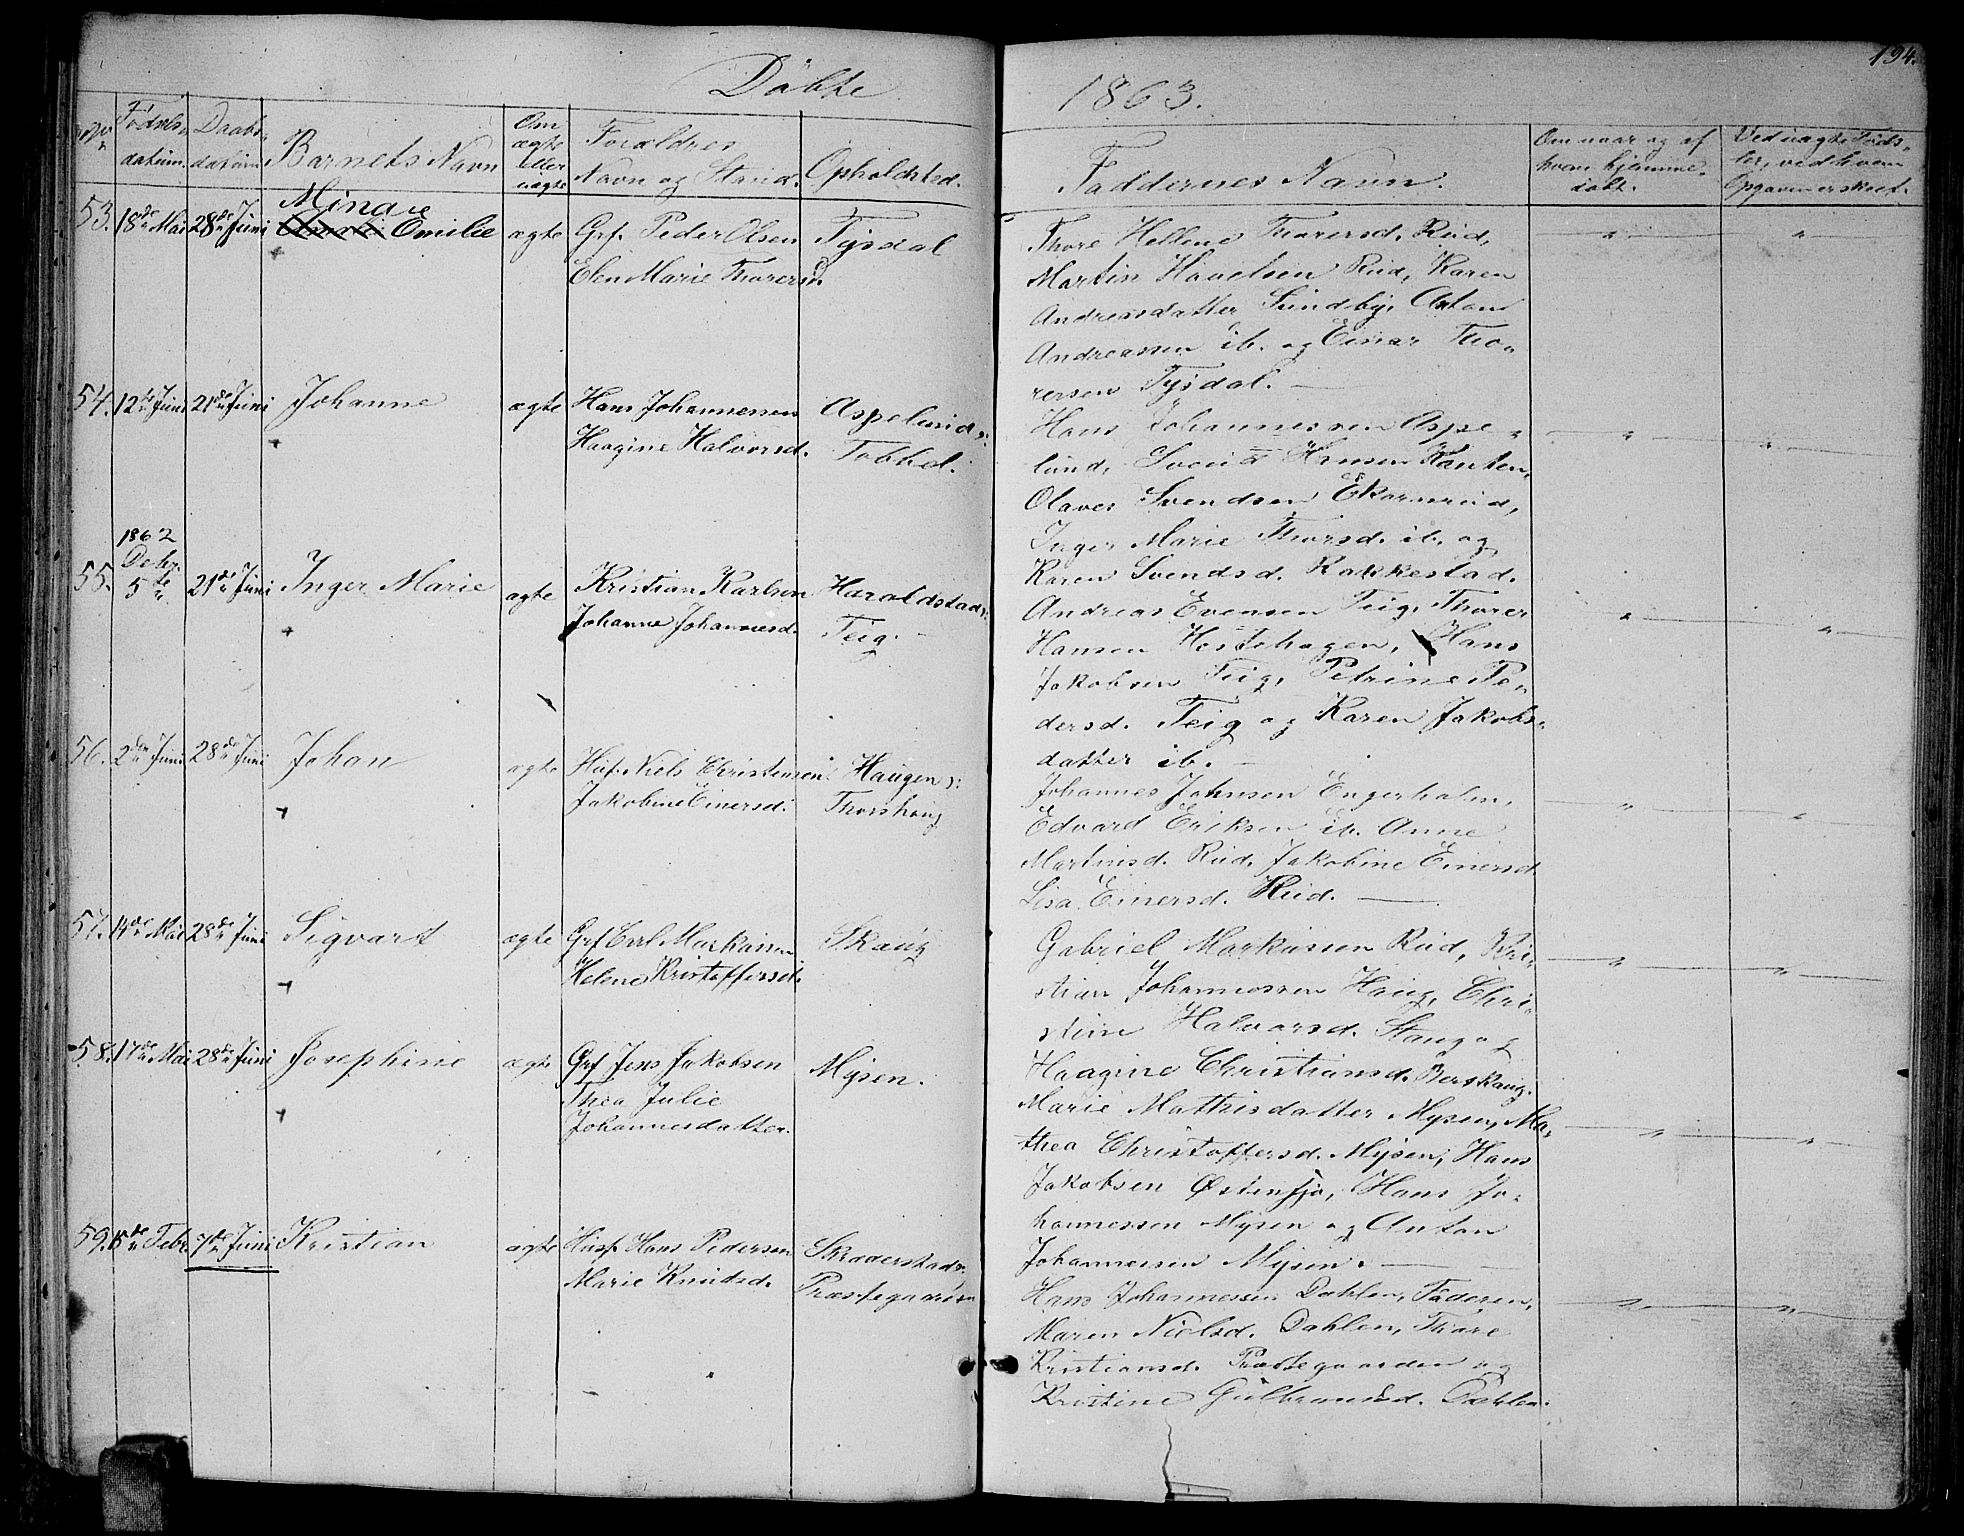 Døbte
1863.
194.
Fødsels-
datum.
Daabs-
datum.
Barnets Navn
Om
ægte
eller
uægte
Forældres
Navn og Stand.
Opholdsted.
Faddernes Navn.
Om naar og af
hvem hjemme-
døbt.
Ved uægte Føds-
ler, ved hvem
Opgaven er skeet.
53. 18de Mai 28de Juni Minda Emilie ægte Grf. Peder Olsen Tysdal
Elen Marie Thorersd.
Thore Hellene Thorersd. Rud,
Martin Havelsen Rud, Karen
Andreasdatter Sundby, Anton
Andreassen ib. og Einar Tho-
rersen Tysdal.
54. 12te Juni 21de Juni Johanne ægte Hans Johannessen Aspelund s:
Haagine Halvorsd. Tobbel.
Hans Johannessen Aspe-
lund, Svend Hansen Kanten,
Olaves Svendsen Ekornrud,
Inger Marie Thorsd. ib. og
Karen Svendsd. Rakkestad.
1862
Debr.
55. 5te 21de Juni Inger Marie ægte Kristian Karlsen Haraldstad s:
Johanne Johannesd. Teig.
Andreas Evensen Teig, Thorer
Hansen Hestehagen, Hans
Jakobsen Teig, Petrine Pe-
dersd. Teig og Karen Jakobs-
datter ib.
56. 2den Juni 28de Juni Johan ægte Huf. Niels Christensen Haugen s:
Jakobine Einersd. Thorshoug
Johannes Johnsen Engerholm,
Edvard Eriksen ib. Anne
Martinsd. Rud, Jakobine Einersd.
Lisa Einersd. Rud.
57. 14de Mai 28de Juni Sigvart ægte Grf Carl Markussen Skaug
Helene Kristoffersd.
Gabriel Markussen Rud, Kri-
stian Johannessen Haug, Chri-
stine Halvorsd. Skaug og
Haagine Christiansd. Berskaug.
58. 17de Mai 28de Juni Josephine ægte Grf Jens Jakobsen Mysen.
Thea Julie
Johannesdatter.
Marie Mathisdatter Mysen, Ma-
thea Christoffersd. Mysen, Hans
Jakobsen Østensjø, Hans Jo-
hannessen Mysen og Anton
Johannessen Mysen.
59. 15de Febr. 7de Juni Kristian ægte Husf. Hans Pedersen Skraderstad s.
Marie Knudsd. Præstegaarden
Hans Johannessen Dahlen, Faderen,
Maren Nielsd. Dahlen, Thore
Kristiansd. Præstegaarden og
Kristine Gulbrandsd. Dahlen.